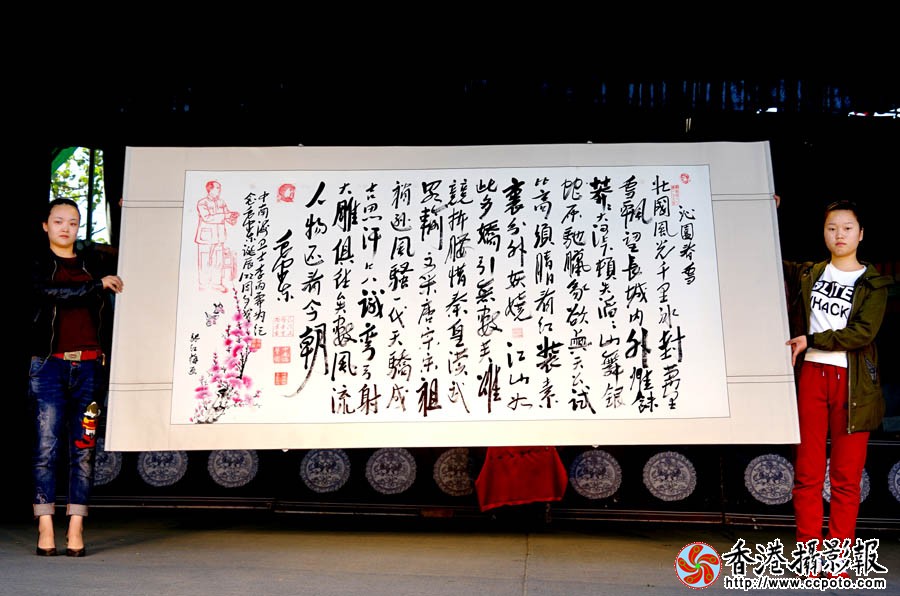 沁園春雪
北國風光千里冰封萬里
雪飄望長城内外惟餘
莽莽大河上下頓失滔滔山舞銀
蛇原馳臘象欲與天公試
比高須晴日看红裝素
裹分外妖嬈江山如
此多嬌引無數英雄
競折腰惜秦皇漢武
略輸文采唐宗宋祖
稍遜風騷一代天驕成
吉思汗只識彎弓射
大雕俱往矣數風流
人物还看今朝
毛泽东
中南海卫士李
为纪
念毛泽东诞辰
江梅画
WHACK
香港攝影報
http://www.ccpoto.com/